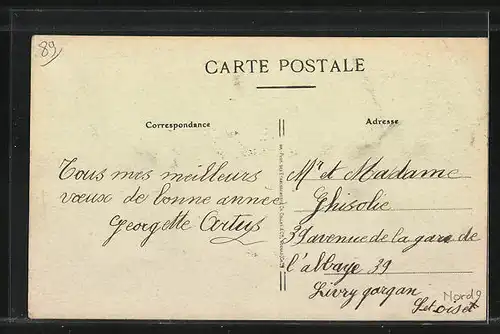 89
CARTE POSTALE
Correspondance
Adresse
Tous mes meilleurs
vœux de bonne année
Georgette Artus
Mr et Madame
Ghisolie
39 avenue de la gare de
l'abbaye 39
Livry gargan
Set oiset
Nord 9